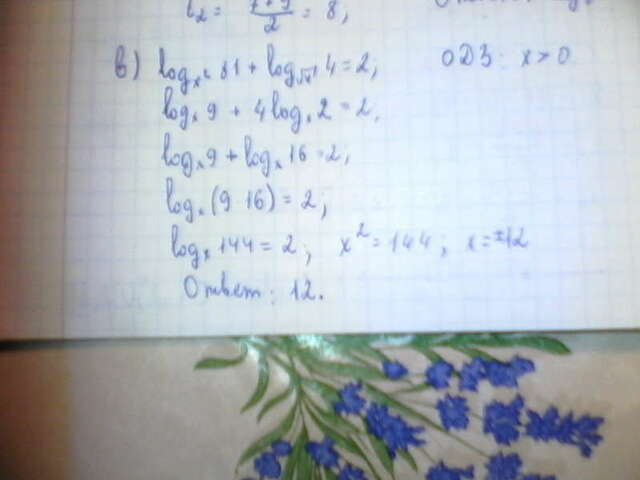 t₂ = (7+9)/2 = 8;
в) logₓ² 81 + log√ₓ 4 = 2; ОДЗ: x > 0
logₓ 9 + 4 logₓ 2 = 2;
logₓ 9 + logₓ 16 = 2;
logₓ (9 · 16) = 2;
logₓ 144 = 2; x² = 144; x = ±12
Ответ: 12.